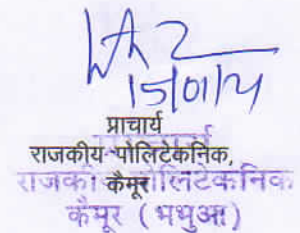 15/01/24
प्राचार्य
राजकीय पोलिटेकनिक,
कैमूर
राजकीय पोलिटेकनिक
कैमूर (भभुआ)